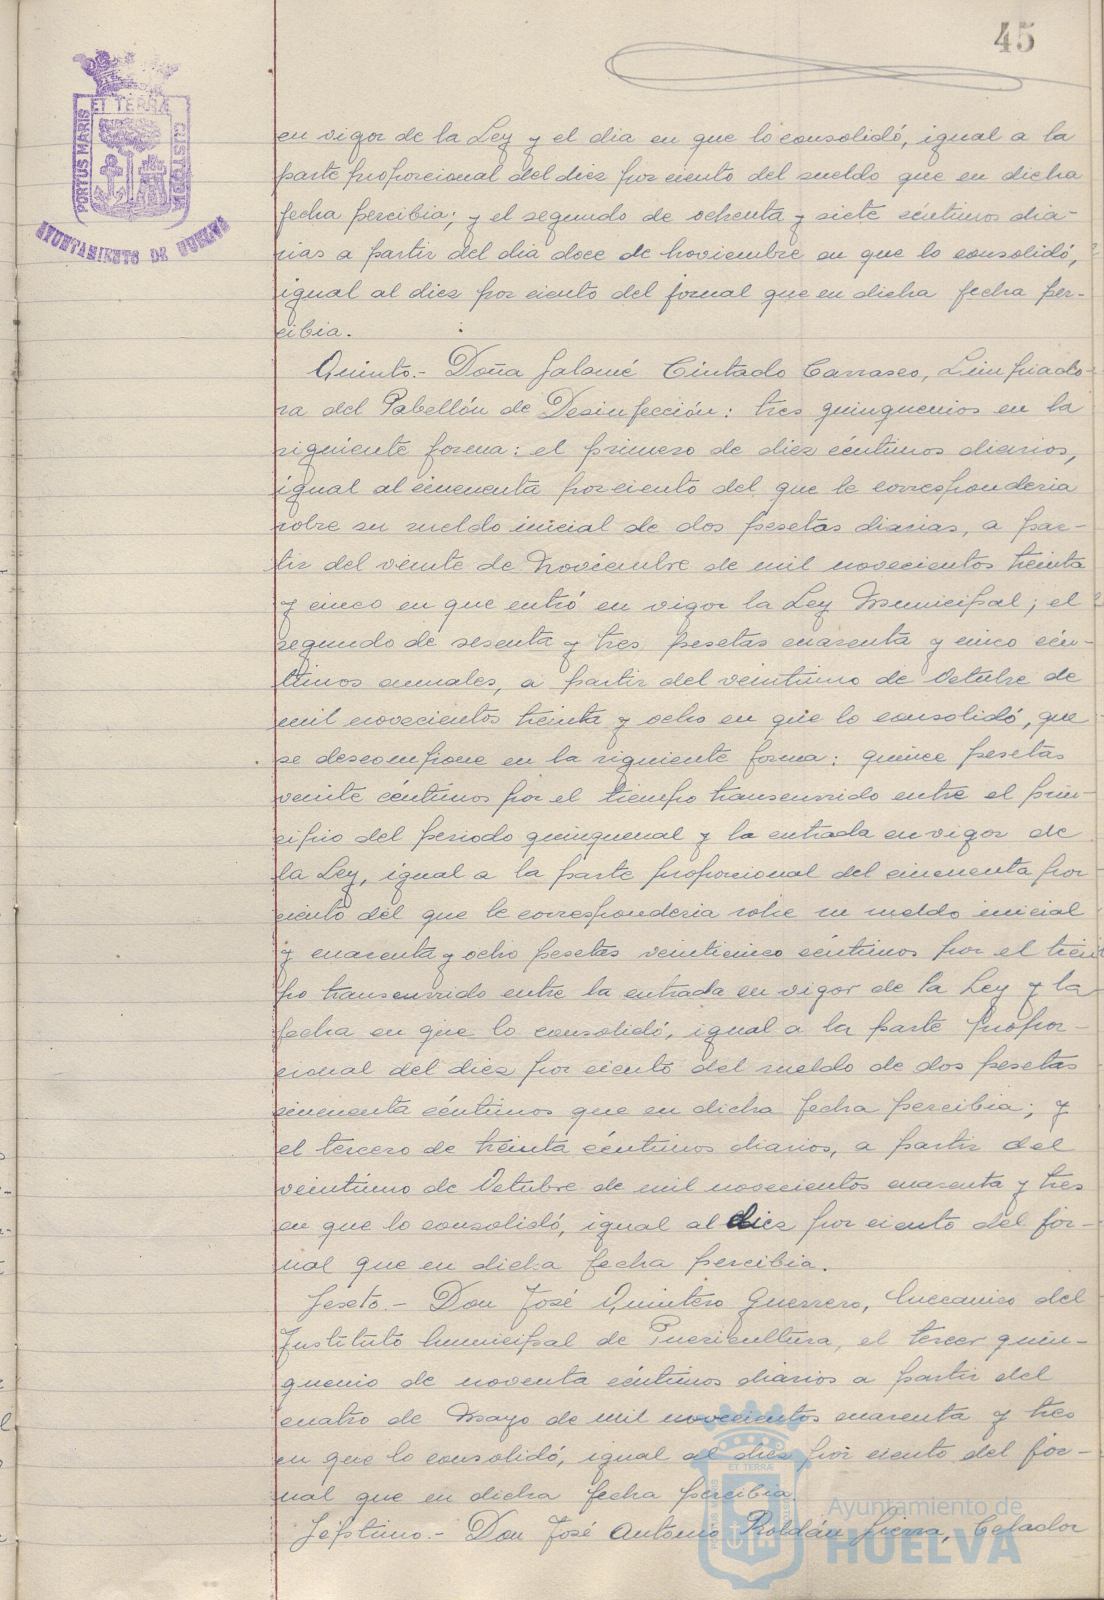 45
ET TERRÆ
PORTUS MARIS
CUSTODIA
AYUNTAMIENTO DE HUELVA
en vigor de la Ley y el dia en que lo consolidó, igual a la
parte proporcional del diez por ciento del sueldo que en dicha
fecha percibia; y el segundo de ochenta y siete céntimos dia-
rias a partir del dia doce de Noviembre en que lo consolidó,
igual al diez por ciento del jornal que en dicha fecha per-
cibia.
Quinto.- Doña Salomé Cintado Carrasco, Limpiado-
ra del Pabellón de Desinfección: tres quinquenios en la
siguiente forma: el primero de diez céntimos diarios,
igual al cincuenta por ciento del que le corresponderia
sobre su sueldo inicial de dos pesetas diarias, a par-
tir del veinte de Noviembre de mil novecientos treinta
y cinco en que entró en vigor la Ley Municipal; el
segundo de sesenta y tres pesetas cuarenta y cinco cén-
timos anuales, a partir del veintiuno de Octubre de
mil novecientos treinta y ocho en que lo consolidó, que
se descompone en la siguiente forma: quince pesetas
veinte céntimos por el tiempo transcurrido entre el prin-
cipio del periodo quinquenal y la entrada en vigor de
la Ley, igual a la parte proporcional del cincuenta por
ciento del que le corresponderia sobre su sueldo inicial
y cuarenta y ocho pesetas veinticinco céntimos por el tiem
po transcurrido entre la entrada en vigor de la Ley y la
fecha en que lo consolidó, igual a la parte propor-
cional del diez por ciento del sueldo de dos pesetas
cincuenta céntimos que en dicha fecha percibia; y
el tercero de treinta céntimos diarios, a partir del
veintiuno de Octubre de mil novecientos cuarenta y tres
en que lo consolidó, igual al diez por ciento del jor-
nal que en dicha fecha percibia.
Sexto.- Don José Quintero Guerrero, Mecanico del
Instituto Municipal de Puericultura, el tercer quin-
quenio de noventa céntimos diarios a partir del
cuatro de Mayo de mil novecientos cuarenta y tres
en que lo consolidó, igual al diez por ciento del jor-
nal que en dicha fecha percibia.
Séptimo.- Don José Antonio Roldán Sierra, Celador
Ayuntamiento de
HUELVA